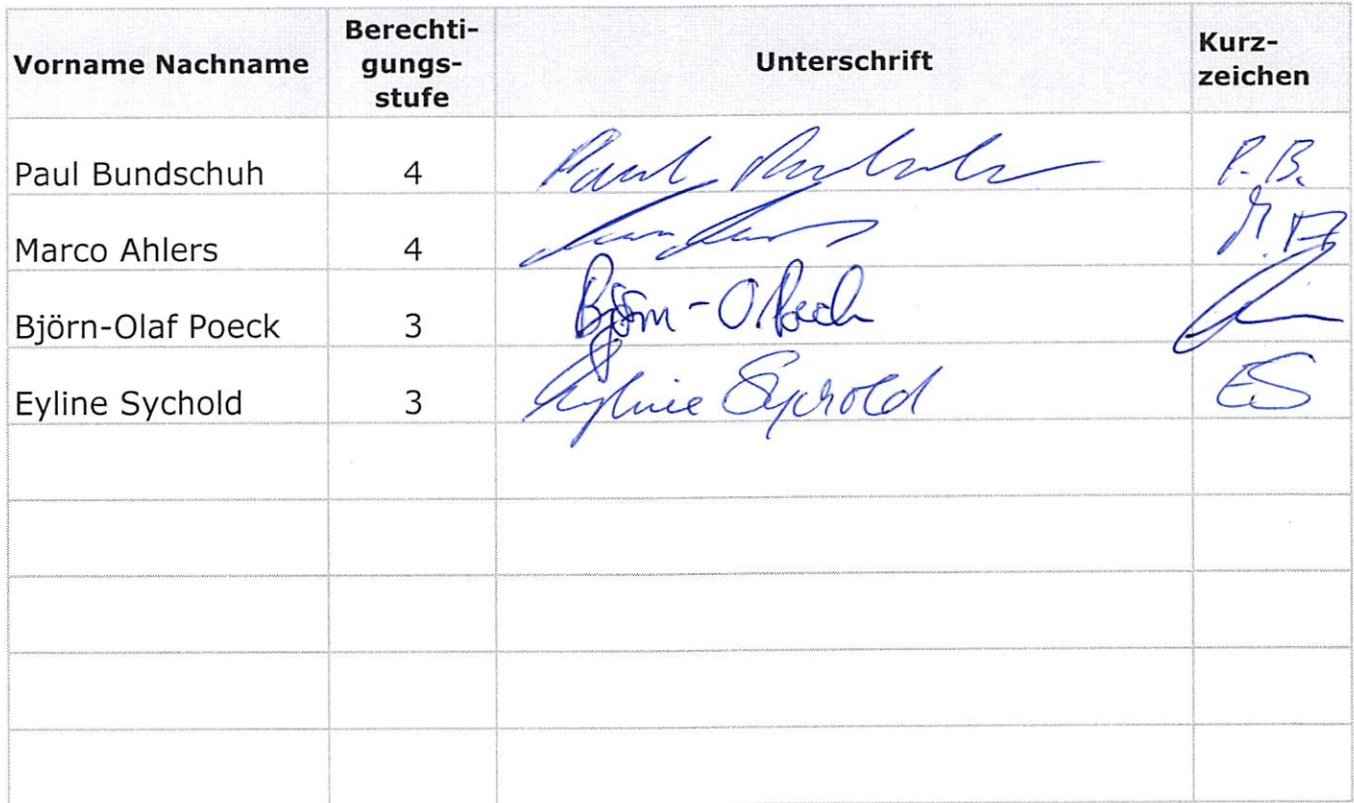 Vorname Nachname Berechti-
gungs-
stufe Unterschrift Kurz-
zeichen
Paul Bundschuh 4 Paul P. B.
Marco Ahlers 4
Björn-Olaf Poeck 3 Björn-O. Poeck
Eyline Sychold 3 Eyline Sychold ES